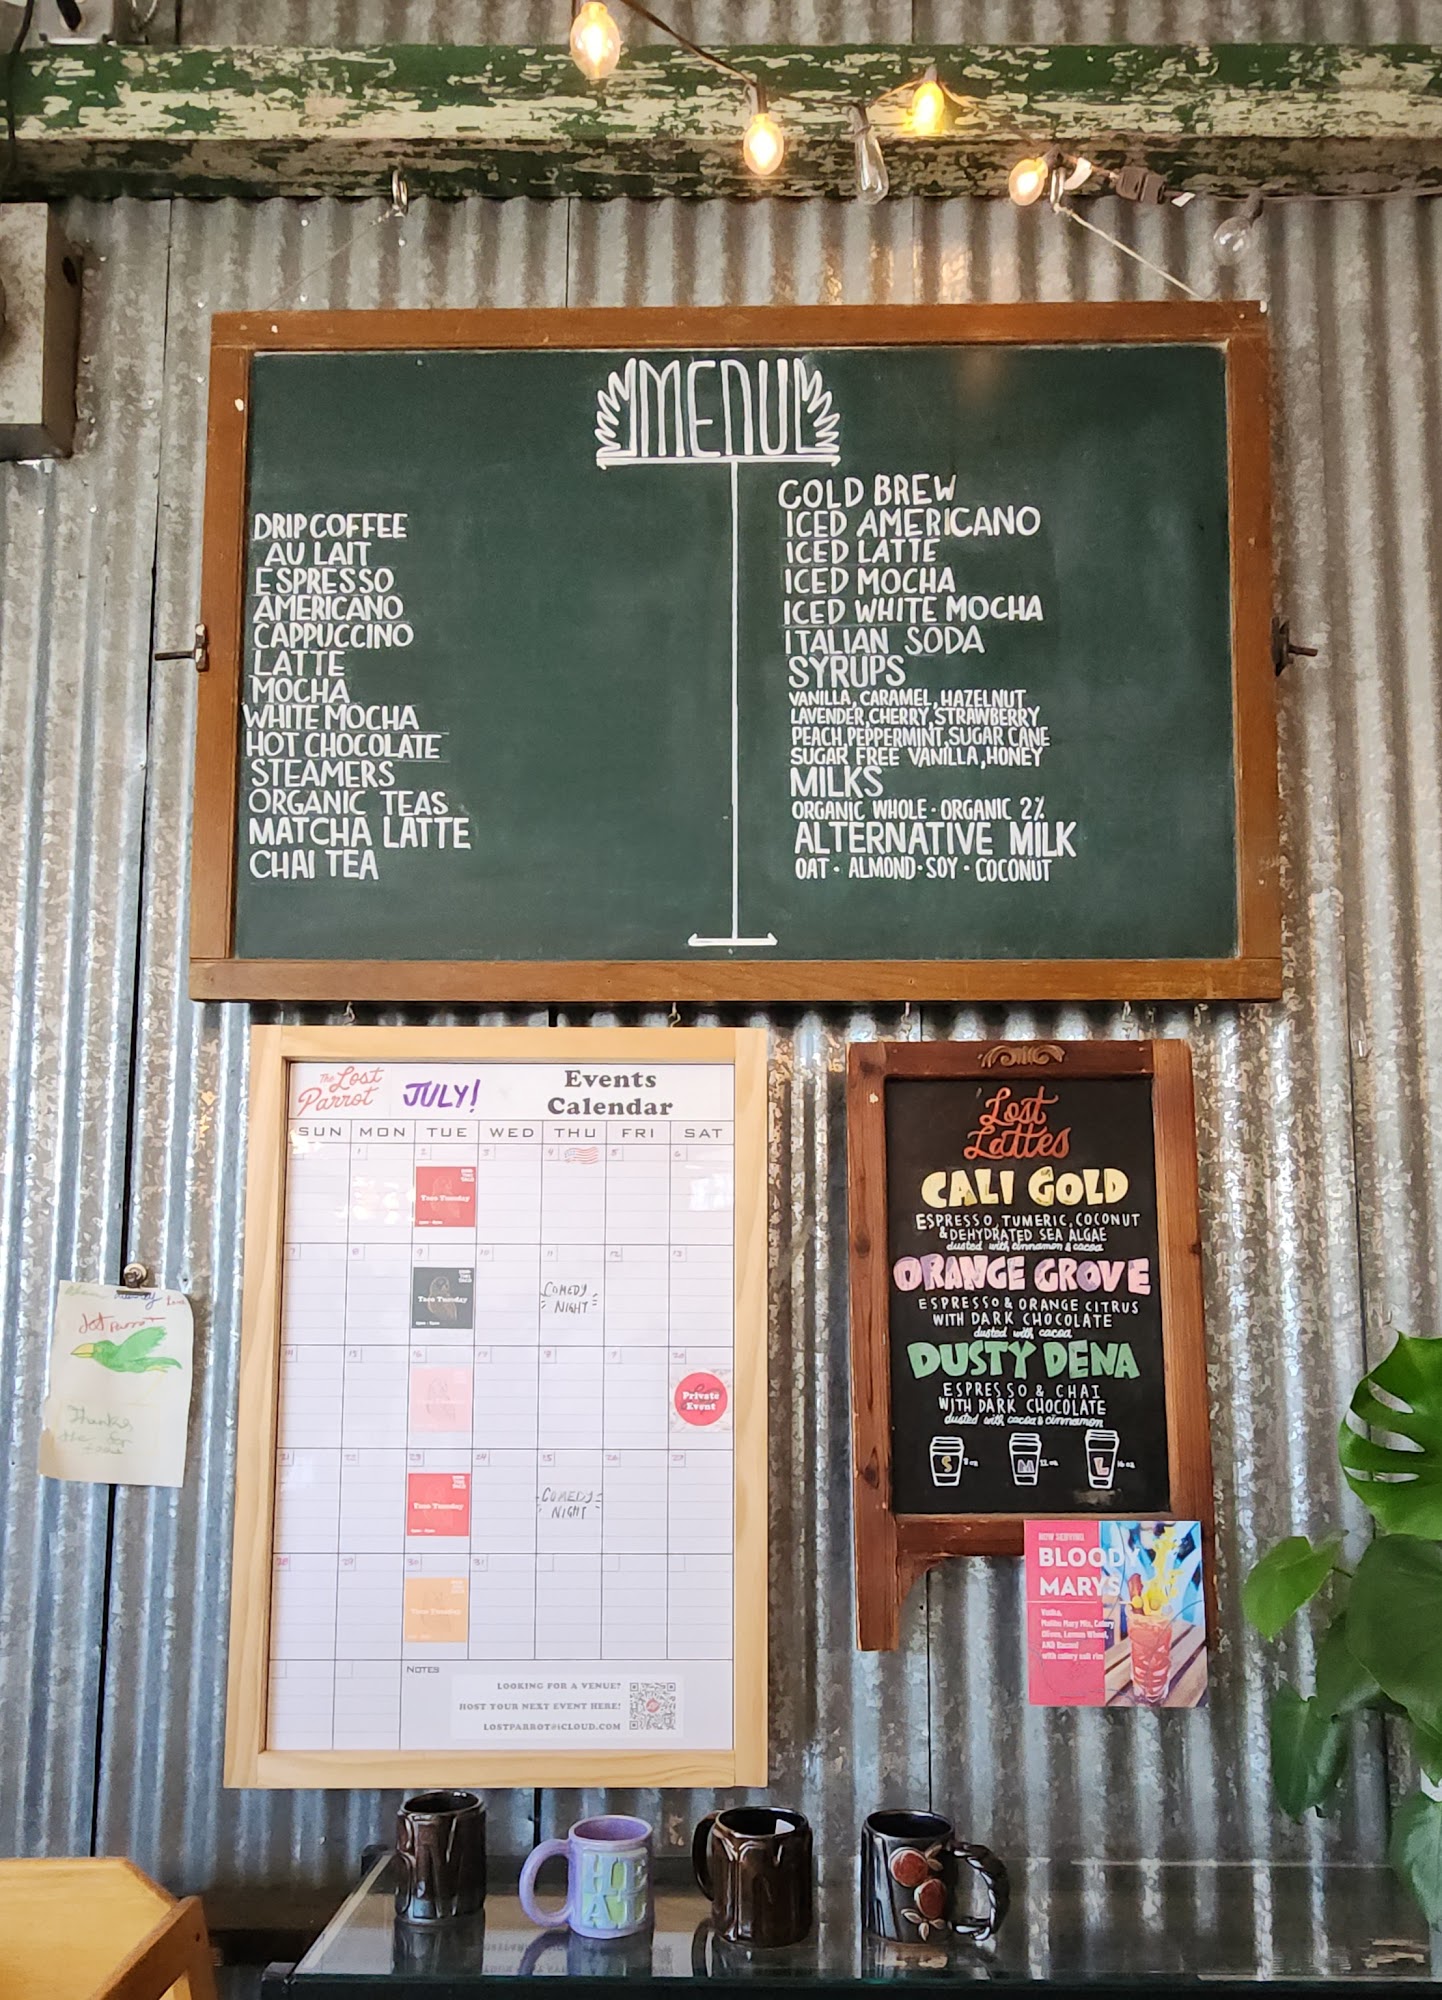 MENU
DRIP COFFEE
AU LAIT
ESPRESSO
AMERICANO
CAPPUCCINO
LATTE
MOCHA
WHITE MOCHA
HOT CHOCOLATE
STEAMERS
ORGANIC TEAS
MATCHA LATTE
CHAI TEA
COLD BREW
ICED AMERICANO
ICED LATTE
ICED MOCHA
ICED WHITE MOCHA
ITALIAN SODA
SYRUPS
VANILLA, CARAMEL, HAZELNUT
LAVENDER, CHERRY, STRAWBERRY
PEACH, PEPPERMINT, SUGAR CANE
SUGAR FREE VANILLA, HONEY
MILKS
ORGANIC WHOLE · ORGANIC 2%
ALTERNATIVE MILK
OAT · ALMOND · SOY · COCONUT
The Lost
Parrot
JULY!
Events
Calendar
SUN MON TUE WED THU FRI SAT
1 2 3 4 5 6
Taco Tuesday
7 8 9 10 11 12 13
Taco Tuesday
COMEDY
NIGHT
14 15 16 17 18 19 20
Private
Event
21 22 23 24 25 26 27
Taco Tuesday
COMEDY
NIGHT
28 29 30 31
Taco Tuesday
NOTES
LOOKING FOR A VENUE?
HOST YOUR NEXT EVENT HERE!
LOSTPARROT@ICLOUD.COM
Lost
Lattes
CALI GOLD
ESPRESSO, TUMERIC, COCONUT
& DEHYDRATED SEA ALGAE
dusted with cinnamon & cacoa
ORANGE GROVE
ESPRESSO & ORANGE CITRUS
WITH DARK CHOCOLATE
dusted with cacoa
DUSTY DENA
ESPRESSO & CHAI
WITH DARK CHOCOLATE
dusted with cacoa & cinnamon
S 8 oz M 12 oz L 16 oz
NOW SERVING
BLOODY
MARYS
Vodka,
Malibu Mary Mix, Celery
Olives, Lemon Wheel,
AND Bacon!
with celery salt rim
Parrot
Thanks
the for